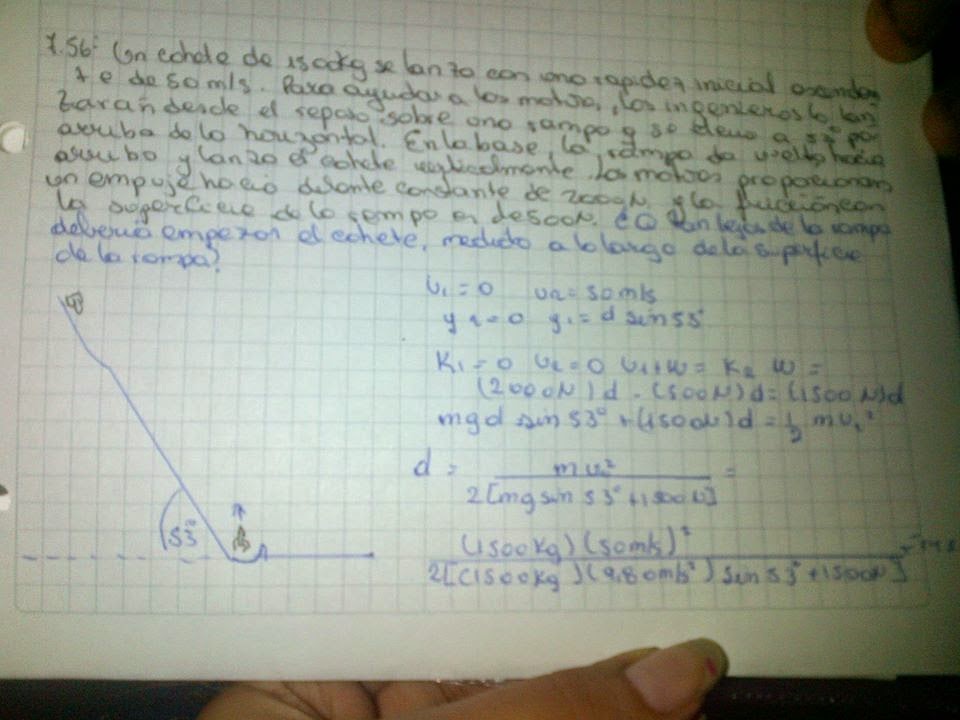 7.56: Un cohete de 1500kg se lanza con una rapidez inicial ascenden
te de 50 m/s. Para ayudar a los motores, los ingenieros lo lan
zarañ desde el reposo sobre una rampa y se eleva a 53° por
arriba de la horizontal. En la base, la rampa da vuelta hacia
arriba y lanza el cohete verticalmente. Los motores proporcionan
un empuje hacia delante constante de 2000N, y la fricción con
la superficie de la rampa es de 500N. ¿Qué tan lejos de la rampa
debería empezar el cohete, medido a lo largo de la superficie
de la rampa?
U₁ = 0 U₂ = 50 m/s
y₂ = 0 y₁ = d sin 53°
K₁ = 0 U₂ = 0 U₁ + W = K₂ W =
(2000N)d - (500N)d = (1500N)d
mgd sin 53° + (1500N)d = 1/2 m v₂²
d = m v₂² / 2[mg sin 53° + 1500N] =
(1500kg)(50m/s)² / 2[(1500kg)(9.80m/s²) sin 53° + 1500N]
53°